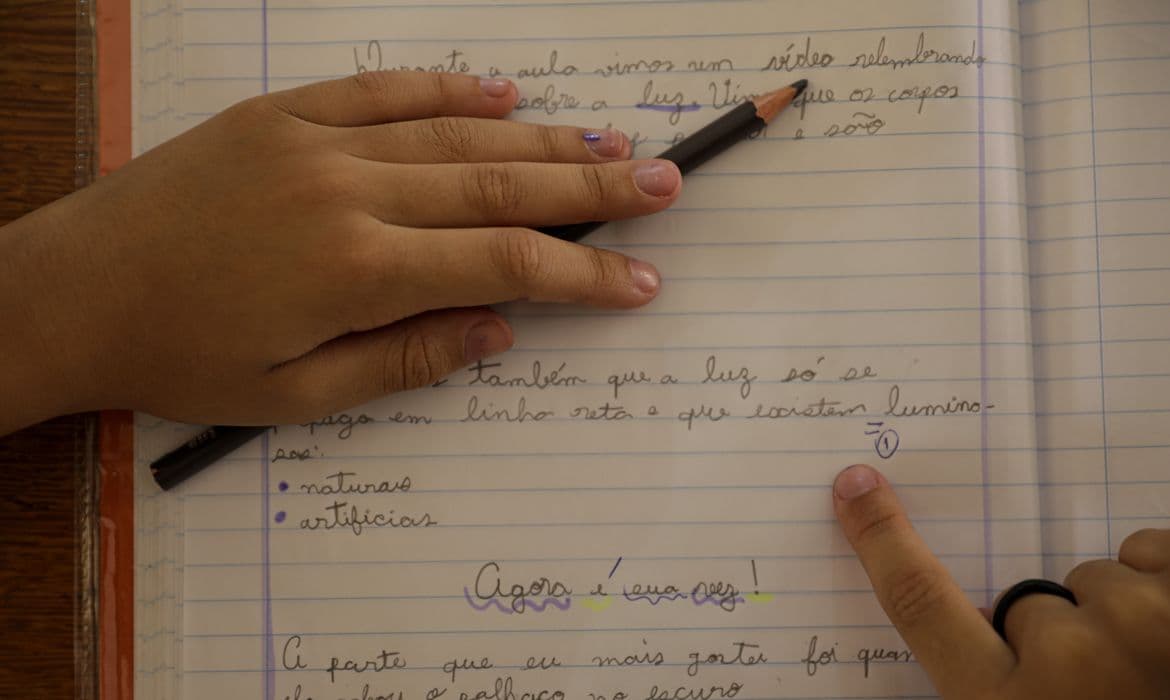 Durante a aula vimos um vídeo relembrando
sobre a luz. que os corpos
e são
também que a luz só se
em linha reta e que existem lumino-
①
sos:
• naturais
• artificias
Agora é sua vez!
A parte que eu mais gostei foi quan
o palhaço no escuro